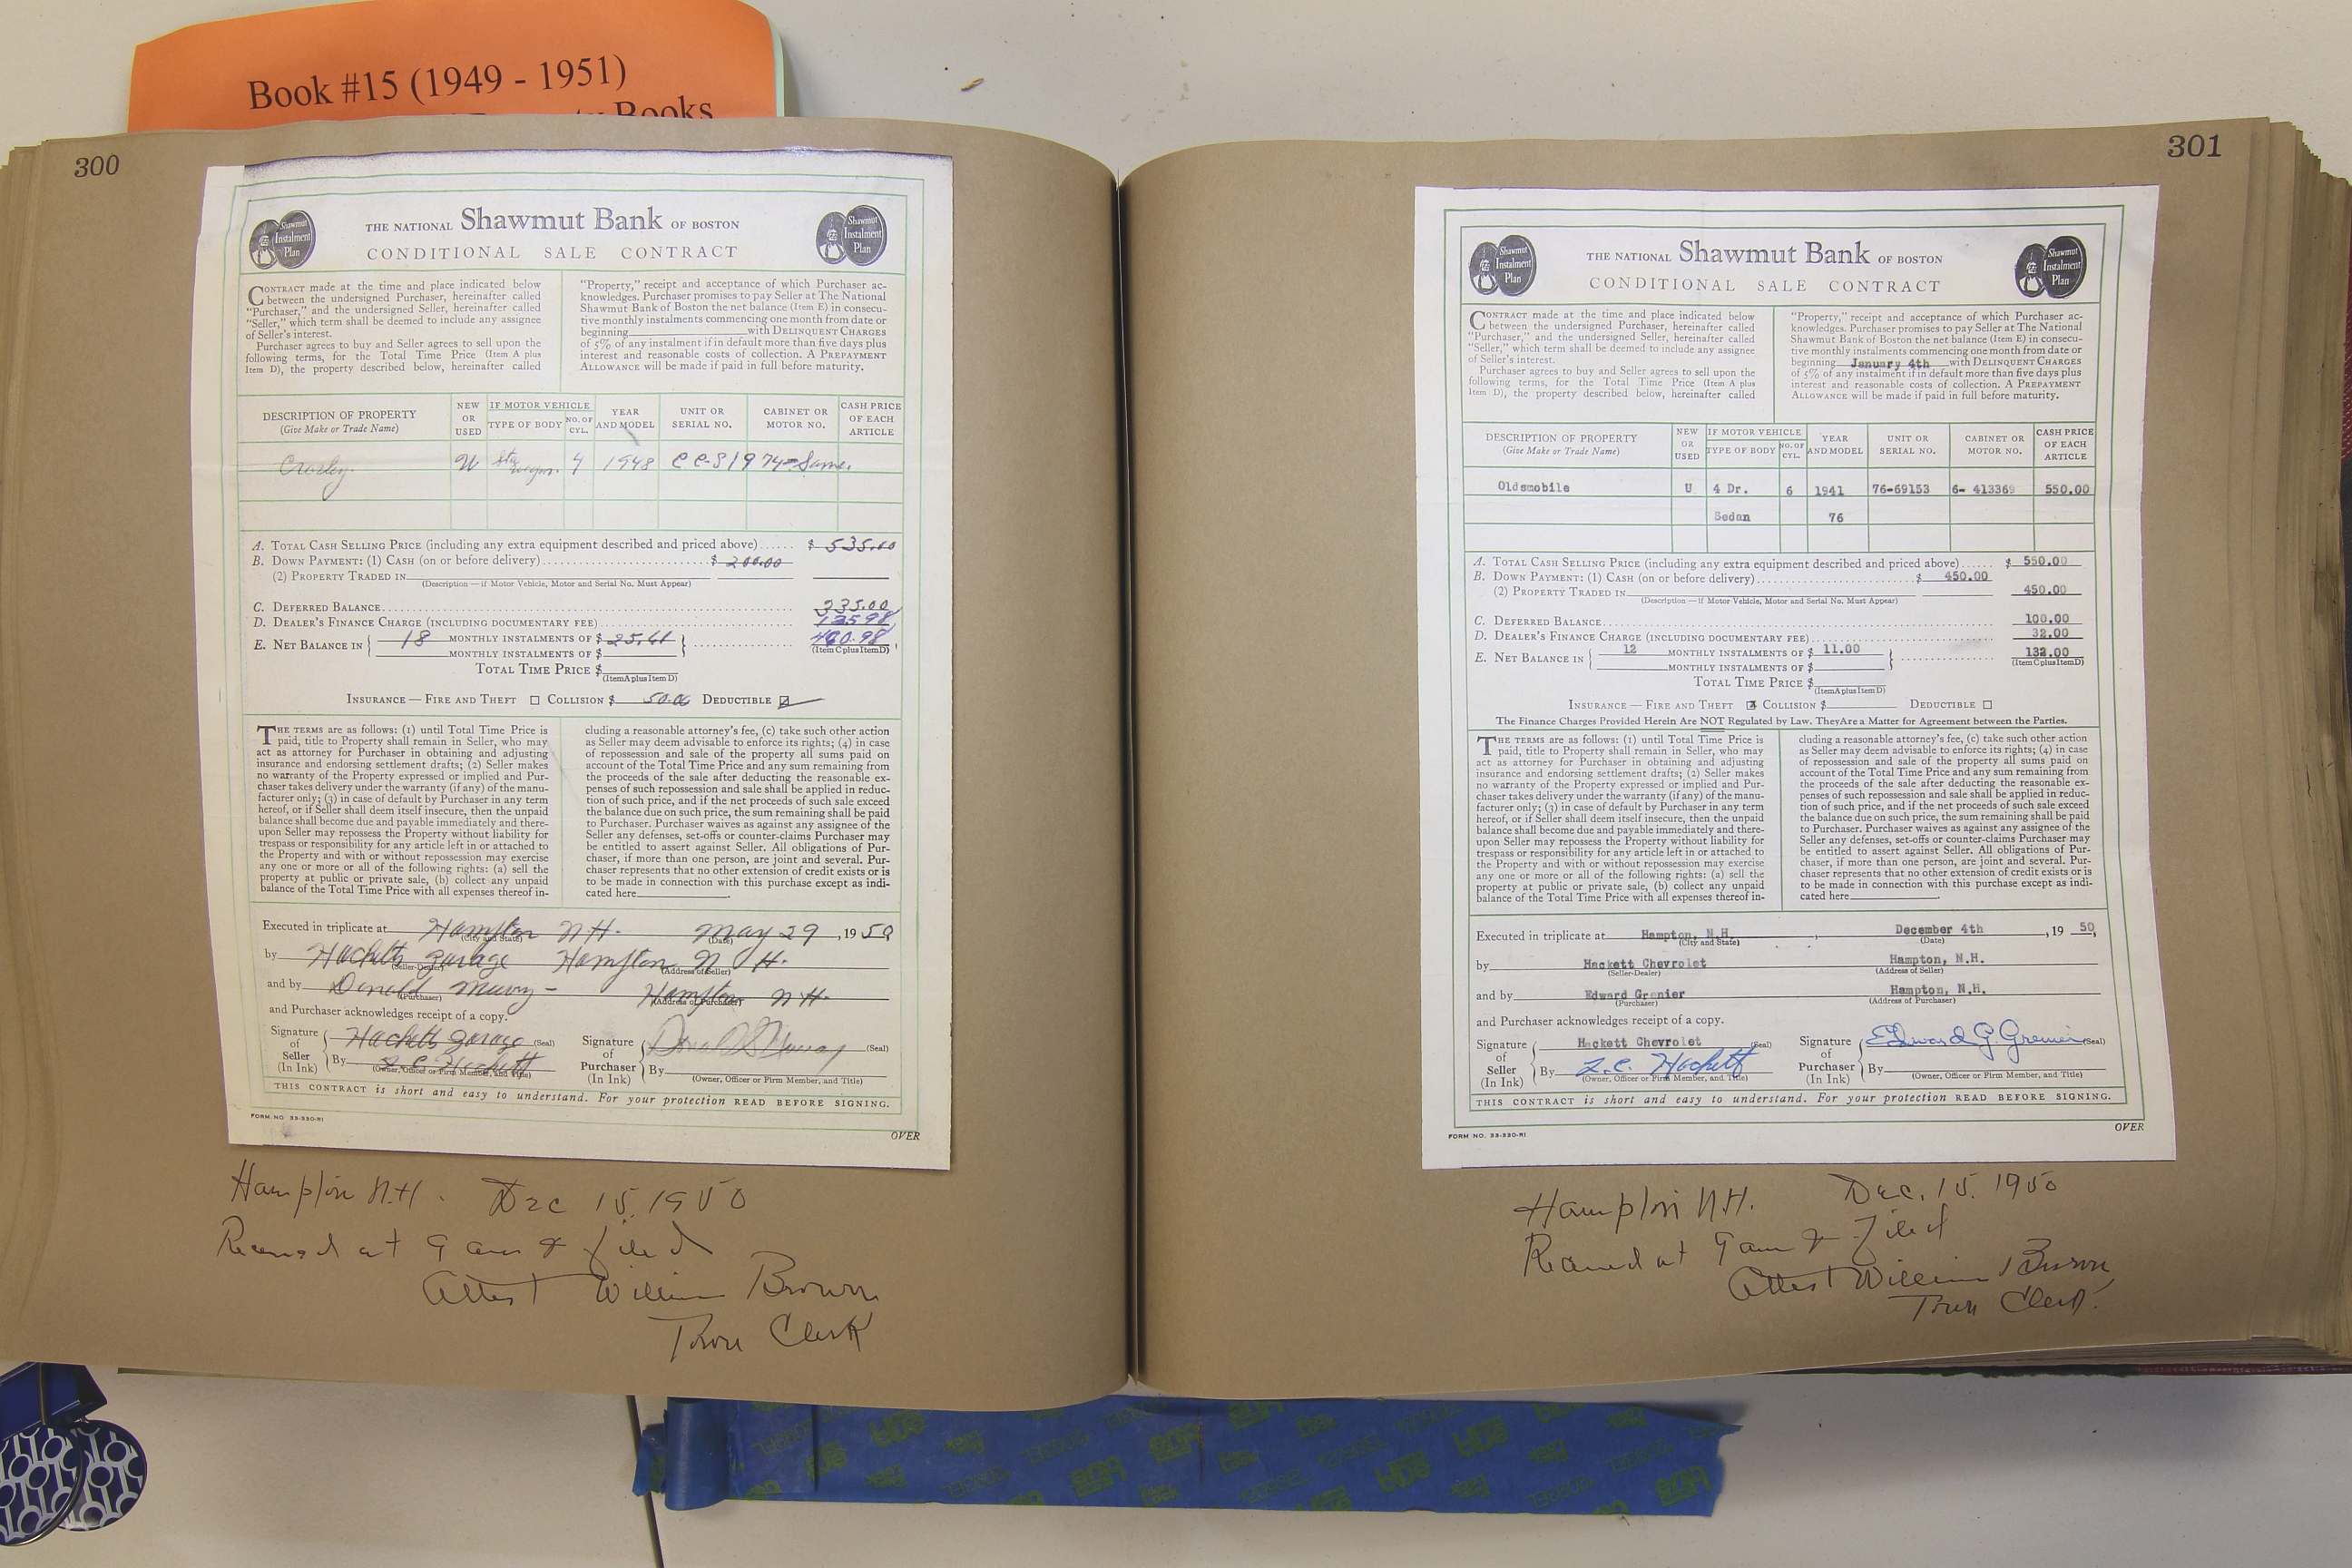 Book #15 (1949 - 1951)
Books
300
Shawmut
Instalment
Plan
THE NATIONAL Shawmut Bank OF BOSTON
CONDITIONAL SALE CONTRACT
Shawmut
Instalment
Plan
CONTRACT made at the time and place indicated below
between the undersigned Purchaser, hereinafter called
"Purchaser," and the undersigned Seller, hereinafter called
"Seller," which term shall be deemed to include any assignee
of Seller's interest.
Purchaser agrees to buy and Seller agrees to sell upon the
following terms, for the Total Time Price (Item A plus
Item D), the property described below, hereinafter called
"Property," receipt and acceptance of which Purchaser ac-
knowledges. Purchaser promises to pay Seller at The National
Shawmut Bank of Boston the net balance (Item E) in consecu-
tive monthly instalments commencing one month from date or
beginning with DELINQUENT CHARGES
of 5% of any instalment if in default more than five days plus
interest and reasonable costs of collection. A PREPAYMENT
ALLOWANCE will be made if paid in full before maturity.
DESCRIPTION OF PROPERTY
(Give Make or Trade Name)
NEW
OR
USED
IF MOTOR VEHICLE
TYPE OF BODY
NO. OF
CYL.
YEAR
AND MODEL
UNIT OR
SERIAL NO.
CABINET OR
MOTOR NO.
CASH PRICE
OF EACH
ARTICLE
Crosley. U Sta wagon. 4 1948 CC-81974 - Same.
A. TOTAL CASH SELLING PRICE (including any extra equipment described and priced above) ...... $ 535.00
B. DOWN PAYMENT: (1) CASH (on or before delivery) ...... $ 200.00
(2) PROPERTY TRADED IN
(Description — if Motor Vehicle, Motor and Serial No. Must Appear)
C. DEFERRED BALANCE ...... 335.00
D. DEALER'S FINANCE CHARGE (INCLUDING DOCUMENTARY FEE) ...... 125.98
E. NET BALANCE IN { 18 MONTHLY INSTALMENTS OF $ 25.61 } ...... 460.98
MONTHLY INSTALMENTS OF $ (Item C plus Item D)
TOTAL TIME PRICE $
(Item A plus Item D)
INSURANCE — FIRE AND THEFT ☐ COLLISION $ 50.00 DEDUCTIBLE ☑
THE TERMS are as follows: (1) until Total Time Price is
paid, title to Property shall remain in Seller, who may
act as attorney for Purchaser in obtaining and adjusting
insurance and endorsing settlement drafts; (2) Seller makes
no warranty of the Property expressed or implied and Pur-
chaser takes delivery under the warranty (if any) of the manu-
facturer only; (3) in case of default by Purchaser in any term
hereof, or if Seller shall deem itself insecure, then the unpaid
balance shall become due and payable immediately and there-
upon Seller may repossess the Property without liability for
trespass or responsibility for any article left in or attached to
the Property and with or without repossession may exercise
any one or more or all of the following rights: (a) sell the
property at public or private sale, (b) collect any unpaid
balance of the Total Time Price with all expenses thereof in-
cluding a reasonable attorney's fee, (c) take such other action
as Seller may deem advisable to enforce its rights; (4) in case
of repossession and sale of the property all sums paid on
account of the Total Time Price and any sum remaining from
the proceeds of the sale after deducting the reasonable ex-
penses of such repossession and sale shall be applied in reduc-
tion of such price, and if the net proceeds of such sale exceed
the balance due on such price, the sum remaining shall be paid
to Purchaser. Purchaser waives as against any assignee of the
Seller any defenses, set-offs or counter-claims Purchaser may
be entitled to assert against Seller. All obligations of Pur-
chaser, if more than one person, are joint and several. Pur-
chaser represents that no other extension of credit exists or is
to be made in connection with this purchase except as indi-
cated here
Executed in triplicate at Hampton N H. May 29, 1950
(City and State) (Date)
by Hacketts Garage Hampton N H.
(Seller-Dealer) (Address of Seller)
and by Donald Murray - Hampton N H.
(Purchaser) (Address of Purchaser)
and Purchaser acknowledges receipt of a copy.
Signature
of
Seller
(In Ink)
Hacketts Garage (Seal)
By L. C. Hackett
(Owner, Officer or Firm Member, and Title)
Signature
of
Purchaser
(In Ink)
Donald S Murray (Seal)
By
(Owner, Officer or Firm Member, and Title)
THIS CONTRACT is short and easy to understand. For your protection READ BEFORE SIGNING.
FORM NO. 33-330-RI
OVER
Hampton N.H. Dec 15. 1950
Received at 9 am & filed
Attest William Brown
Town Clerk
301
Shawmut
Instalment
Plan
THE NATIONAL Shawmut Bank OF BOSTON
CONDITIONAL SALE CONTRACT
Shawmut
Instalment
Plan
CONTRACT made at the time and place indicated below
between the undersigned Purchaser, hereinafter called
"Purchaser," and the undersigned Seller, hereinafter called
"Seller," which term shall be deemed to include any assignee
of Seller's interest.
Purchaser agrees to buy and Seller agrees to sell upon the
following terms, for the Total Time Price (Item A plus
Item D), the property described below, hereinafter called
"Property," receipt and acceptance of which Purchaser ac-
knowledges. Purchaser promises to pay Seller at The National
Shawmut Bank of Boston the net balance (Item E) in consecu-
tive monthly instalments commencing one month from date or
beginning January 4th with DELINQUENT CHARGES
of 5% of any instalment if in default more than five days plus
interest and reasonable costs of collection. A PREPAYMENT
ALLOWANCE will be made if paid in full before maturity.
DESCRIPTION OF PROPERTY
(Give Make or Trade Name)
NEW
OR
USED
IF MOTOR VEHICLE
TYPE OF BODY
NO. OF
CYL.
YEAR
AND MODEL
UNIT OR
SERIAL NO.
CABINET OR
MOTOR NO.
CASH PRICE
OF EACH
ARTICLE
Oldsmobile U 4 Dr. 6 1941 76-69153 6- 413369 550.00
Sedan 76
A. TOTAL CASH SELLING PRICE (including any extra equipment described and priced above) ...... $ 550.00
B. DOWN PAYMENT: (1) CASH (on or before delivery) ...... $ 450.00
(2) PROPERTY TRADED IN 450.00
(Description — if Motor Vehicle, Motor and Serial No. Must Appear)
C. DEFERRED BALANCE ...... 100.00
D. DEALER'S FINANCE CHARGE (INCLUDING DOCUMENTARY FEE) ...... 32.00
E. NET BALANCE IN { 12 MONTHLY INSTALMENTS OF $ 11.00 } ...... 132.00
MONTHLY INSTALMENTS OF $ (Item C plus Item D)
TOTAL TIME PRICE $
(Item A plus Item D)
INSURANCE — FIRE AND THEFT ☒ COLLISION $ DEDUCTIBLE ☐
The Finance Charges Provided Herein Are NOT Regulated by Law. They Are a Matter for Agreement between the Parties.
THE TERMS are as follows: (1) until Total Time Price is
paid, title to Property shall remain in Seller, who may
act as attorney for Purchaser in obtaining and adjusting
insurance and endorsing settlement drafts; (2) Seller makes
no warranty of the Property expressed or implied and Pur-
chaser takes delivery under the warranty (if any) of the manu-
facturer only; (3) in case of default by Purchaser in any term
hereof, or if Seller shall deem itself insecure, then the unpaid
balance shall become due and payable immediately and there-
upon Seller may repossess the Property without liability for
trespass or responsibility for any article left in or attached to
the Property and with or without repossession may exercise
any one or more or all of the following rights: (a) sell the
property at public or private sale, (b) collect any unpaid
balance of the Total Time Price with all expenses thereof in-
cluding a reasonable attorney's fee, (c) take such other action
as Seller may deem advisable to enforce its rights; (4) in case
of repossession and sale of the property all sums paid on
account of the Total Time Price and any sum remaining from
the proceeds of the sale after deducting the reasonable ex-
penses of such repossession and sale shall be applied in reduc-
tion of such price, and if the net proceeds of such sale exceed
the balance due on such price, the sum remaining shall be paid
to Purchaser. Purchaser waives as against any assignee of the
Seller any defenses, set-offs or counter-claims Purchaser may
be entitled to assert against Seller. All obligations of Pur-
chaser, if more than one person, are joint and several. Pur-
chaser represents that no other extension of credit exists or is
to be made in connection with this purchase except as indi-
cated here
Executed in triplicate at Hampton, N.H. , December 4th , 19 50,
(City and State) (Date)
by Hackett Chevrolet Hampton, N.H.
(Seller-Dealer) (Address of Seller)
and by Edward Grenier Hampton, N.H.
(Purchaser) (Address of Purchaser)
and Purchaser acknowledges receipt of a copy.
Signature
of
Seller
(In Ink)
Hackett Chevrolet (Seal)
By L. C. Hackett
(Owner, Officer or Firm Member, and Title)
Signature
of
Purchaser
(In Ink)
Edward G. Grenier (Seal)
By
(Owner, Officer or Firm Member, and Title)
THIS CONTRACT is short and easy to understand. For your protection READ BEFORE SIGNING.
FORM NO. 33-330-RI
OVER
Hampton N.H. Dec. 15. 1950
Received at 9 am & filed
Attest William Brown,
Town Clerk.